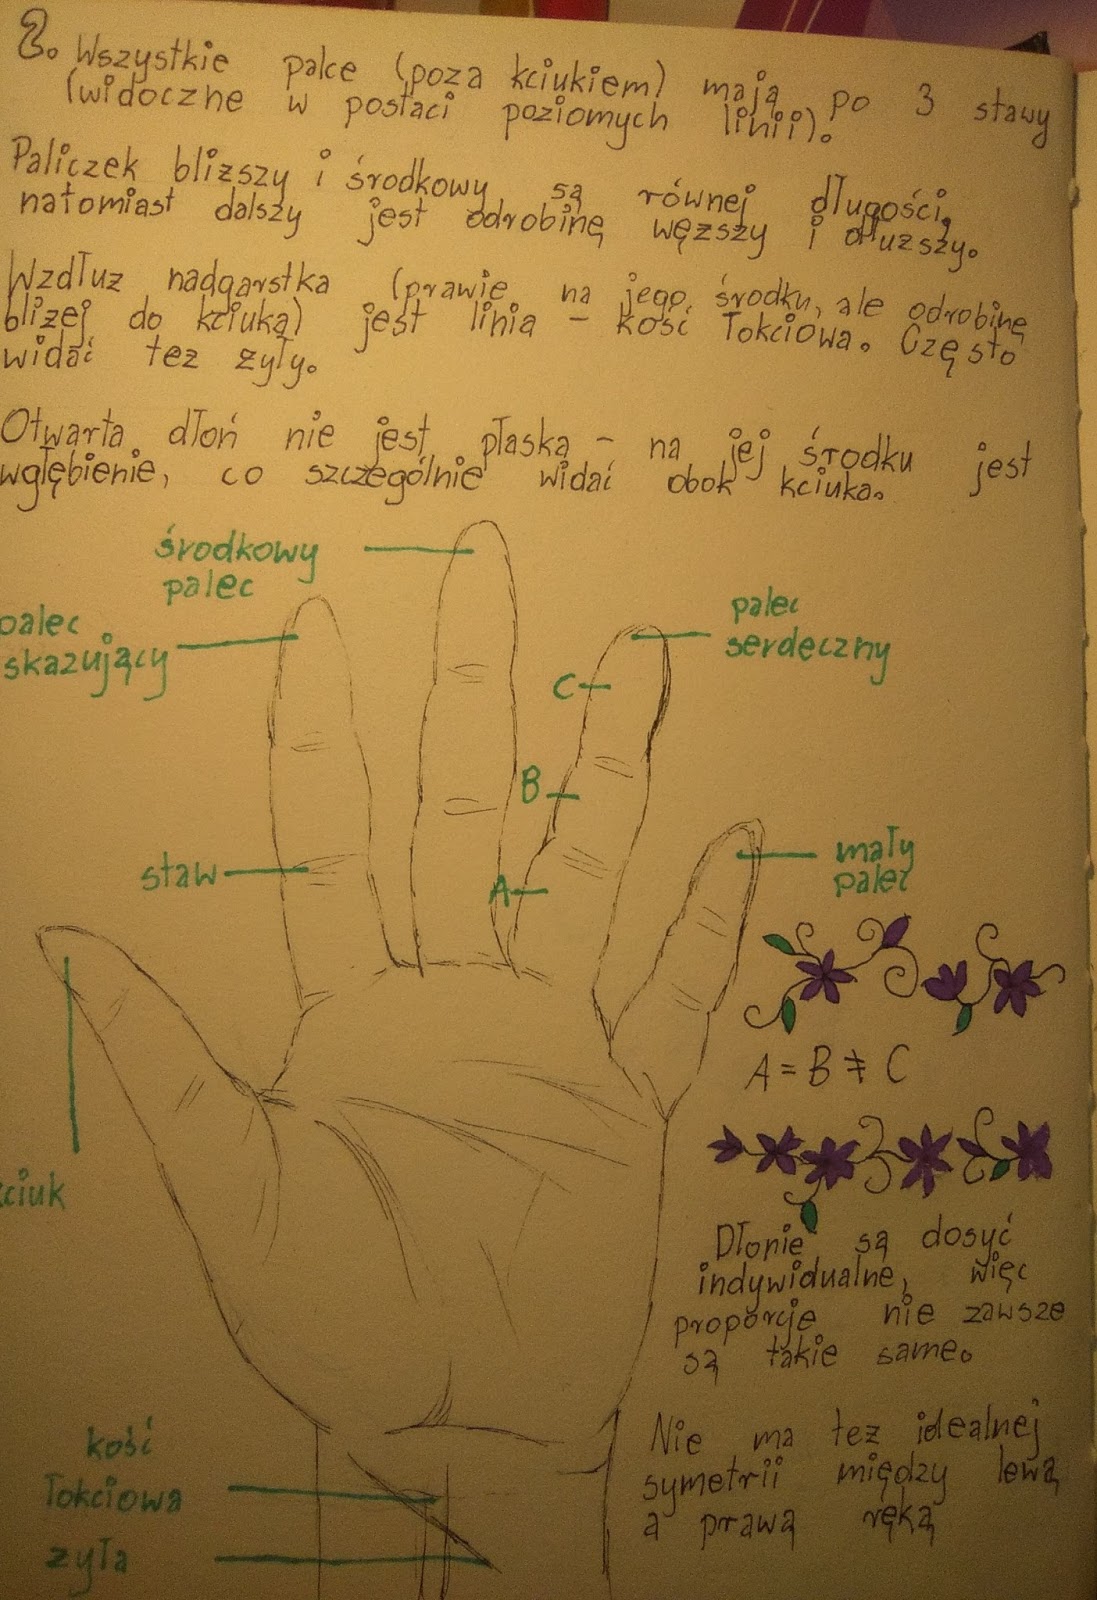 2. Wszystkie palce (poza kciukiem) mają po 3 stawy
(widoczne w postaci poziomych linii).
Paliczek bliższy i środkowy są równej długości,
natomiast dalszy jest odrobinę węższy i dłuższy.
Wzdłuż nadgarstka (prawie na jego środku, ale odrobinę
bliżej do kciuka) jest linia - kość łokciowa. Często
widać też żyły.
Otwarta dłoń nie jest płaska - na jej środku jest
wgłębienie, co szczególnie widać obok kciuka.
środkowy
palec
palec
skazujący
palec
serdeczny
C
B
A
staw
mały
palec
A = B ≠ C
ciuk
Dłonie są dosyć
indywidualne, więc
proporcje nie zawsze
są takie same.
Nie ma też idealnej
symetrii między lewą
a prawą ręką
kość
łokciowa
żyła